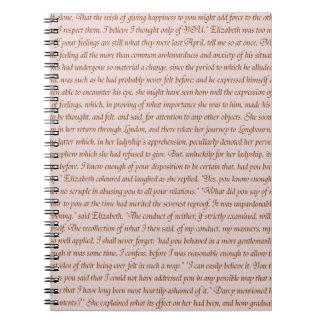 alone. That the wish of giving happiness to you might add force to the othe
I respect them, I believe I thought only of YOU." Elizabeth was too
your feelings are still what they were last April, tell me so at once. "M
feeling all the more than common awkwardness and anxiety of his situati
had undergone so material a change, since the period to which he allude
was such as he had probably never felt before; and he expressed himself
able to encounter his eye, she might have seen how well the expression of
feelings, which, in proving of what importance she was to him, made his
be thought, and felt, and said, for attention to any other objects. She soon
in her return through London, and there relate her journey to Longbourn,
latter which, in her ladyship's apprehension, peculiarly denoted her perver
nephew which she had refused to give. "But, unluckily for her ladyship, it
before. I knew enough of your disposition to be certain that, had you
" Elizabeth coloured and laughed as she replied, "Yes, you know enough
no scruple in abusing you to all your relations." "What did you say of
to you at the time had merited the severest reproof. It was unpardonabl
ning," said Elizabeth. "The conduct of neither, if strictly examined, will
The recollection of what I then said, of my conduct, my manners, my
so well applied, I shall never forget: 'had you behaved in a more gentleman
it was some time, I confess, before I was reasonable enough to allow
idea of their being ever felt in such a way." "I can easily believe it. You
that I could not have addressed you in any possible way that
that I have long been most heartily ashamed of it." Darcy mentioned
contents?" She explained what its effect on her had been, and how gradual